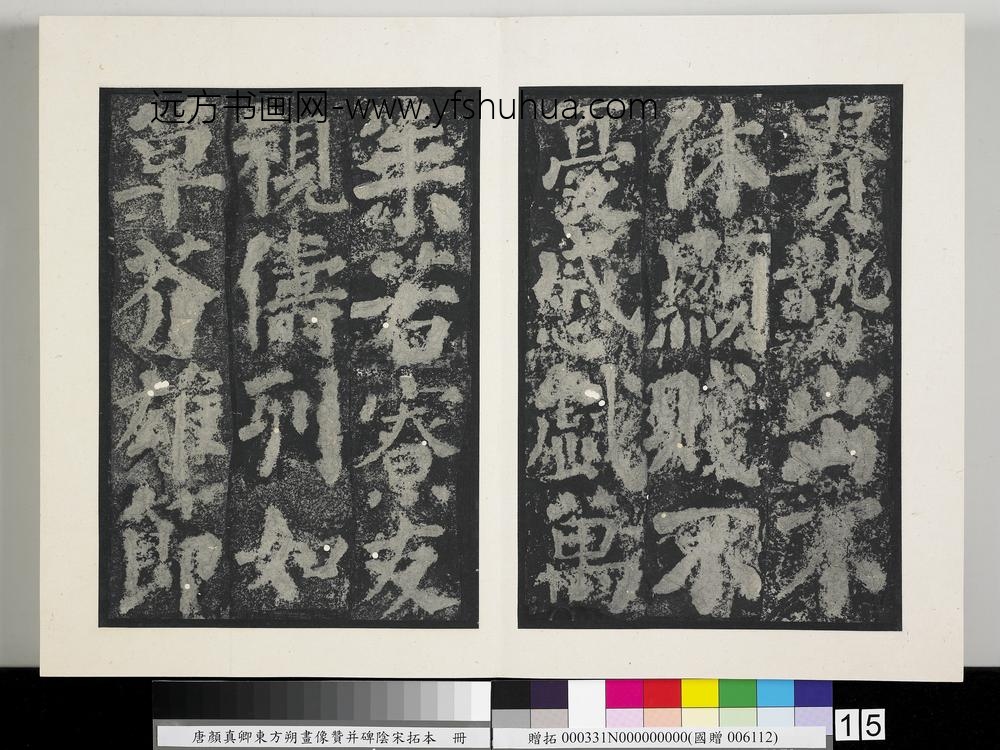 远方书画网-www.yfshuhua.com
貴勢出不
休顯賤不
憂戚戲萬
乘若寮友
視儔列如
草芥雄節
唐顏真卿東方朔畫像贊并碑陰宋拓本 冊
贈拓 000331N000000000(國贈 006112)
15